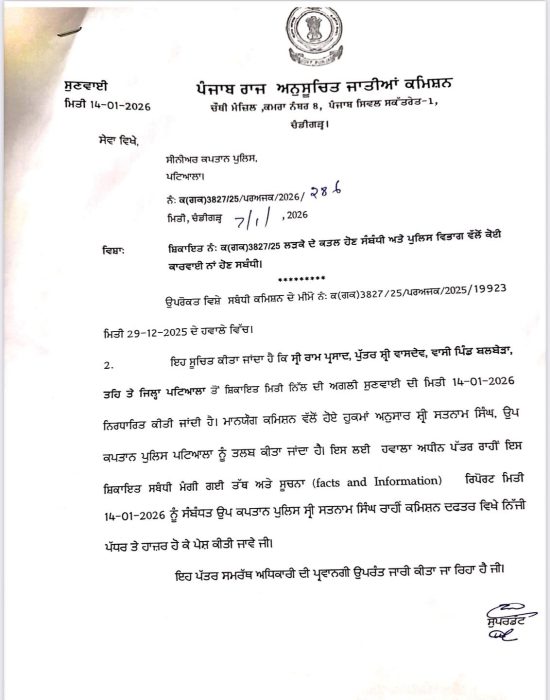 ਸੁਣਵਾਈ
ਮਿਤੀ 14-01-2026
ਪੰਜਾਬ ਰਾਜ ਅਨੁਸੂਚਿਤ ਜਾਤੀਆਂ ਕਮਿਸ਼ਨ
ਚੌਥੀ ਮੰਜ਼ਿਲ ,ਕਮਰਾ ਨੰਬਰ 8, ਪੰਜਾਬ ਸਿਵਲ ਸਕੱਤਰੇਤ-1,
ਚੰਡੀਗੜ੍ਹ।
ਸੇਵਾ ਵਿਖੇ,
ਸੀਨੀਅਰ ਕਪਤਾਨ ਪੁਲਿਸ,
ਪਟਿਆਲਾ।
ਨੰ: ਕ(ਗਕ)3827/25/ਪਰਅਜਕ/2026/ 286
ਮਿਤੀ, ਚੰਡੀਗੜ੍ਹ 7/1/ ,2026
ਵਿਸ਼ਾ: ਸ਼ਿਕਾਇਤ ਨੰ: ਕ(ਗਕ)3827/25 ਲੜਕੇ ਦੇ ਕਤਲ ਹੋਣ ਸੰਬੰਧੀ ਅਤੇ ਪੁਲਿਸ ਵਿਭਾਗ ਵੱਲੋਂ ਕੋਈ
ਕਾਰਵਾਈ ਨਾਂ ਹੋਣ ਸਬੰਧੀ।
*********
ਉਪਰੋਕਤ ਵਿਸ਼ੇ ਸਬੰਧੀ ਕਮਿਸ਼ਨ ਦੇ ਮੀਮੋ ਨੰ: ਕ(ਗਕ)3827/25/ਪਰਅਜਕ/2025/19923
ਮਿਤੀ 29-12-2025 ਦੇ ਹਵਾਲੇ ਵਿੱਚ।
2. ਇਹ ਸੂਚਿਤ ਕੀਤਾ ਜਾਂਦਾ ਹੈ ਕਿ ਸ੍ਰੀ ਰਾਮ ਪ੍ਰਸਾਦ, ਪੁੱਤਰ ਸ੍ਰੀ ਵਾਸਦੇਵ, ਵਾਸੀ ਪਿੰਡ ਬਲਬੇੜਾ,
ਤਹਿ ਤੇ ਜਿਲ੍ਹਾ ਪਟਿਆਲਾ ਤੋਂ ਸ਼ਿਕਾਇਤ ਮਿਤੀ ਨਿੱਲ ਦੀ ਅਗਲੀ ਸੁਣਵਾਈ ਦੀ ਮਿਤੀ 14-01-2026
ਨਿਰਧਾਰਿਤ ਕੀਤੀ ਜਾਂਦੀ ਹੈ। ਮਾਨਯੋਗ ਕਮਿਸ਼ਨ ਵੱਲੋਂ ਹੋਏ ਹੁਕਮਾਂ ਅਨੁਸਾਰ ਸ਼੍ਰੀ ਸਤਨਾਮ ਸਿੰਘ, ਉਪ
ਕਪਤਾਨ ਪੁਲਿਸ ਪਟਿਆਲਾ ਨੂੰ ਤਲਬ ਕੀਤਾ ਜਾਂਦਾ ਹੈ। ਇਸ ਲਈ ਹਵਾਲਾ ਅਧੀਨ ਪੱਤਰ ਰਾਹੀਂ ਇਸ
ਸ਼ਿਕਾਇਤ ਸਬੰਧੀ ਮੰਗੀ ਗਈ ਤੱਥ ਅਤੇ ਸੂਚਨਾ (facts and Information) ਰਿਪੋਰਟ ਮਿਤੀ
14-01-2026 ਨੂੰ ਸੰਬੰਧਤ ਉਪ ਕਪਤਾਨ ਪੁਲਿਸ ਸ੍ਰੀ ਸਤਨਾਮ ਸਿੰਘ ਰਾਹੀਂ ਕਮਿਸ਼ਨ ਦਫਤਰ ਵਿਖੇ ਨਿੱਜੀ
ਪੱਧਰ ਤੇ ਹਾਜ਼ਰ ਹੋ ਕੇ ਪੇਸ਼ ਕੀਤੀ ਜਾਵੇ ਜੀ।
ਇਹ ਪੱਤਰ ਸਮਰੱਥ ਅਧਿਕਾਰੀ ਦੀ ਪ੍ਰਵਾਨਗੀ ਉਪਰੰਤ ਜਾਰੀ ਕੀਤਾ ਜਾ ਰਿਹਾ ਹੈ ਜੀ।
ਸੁਪਰਡੰਟ